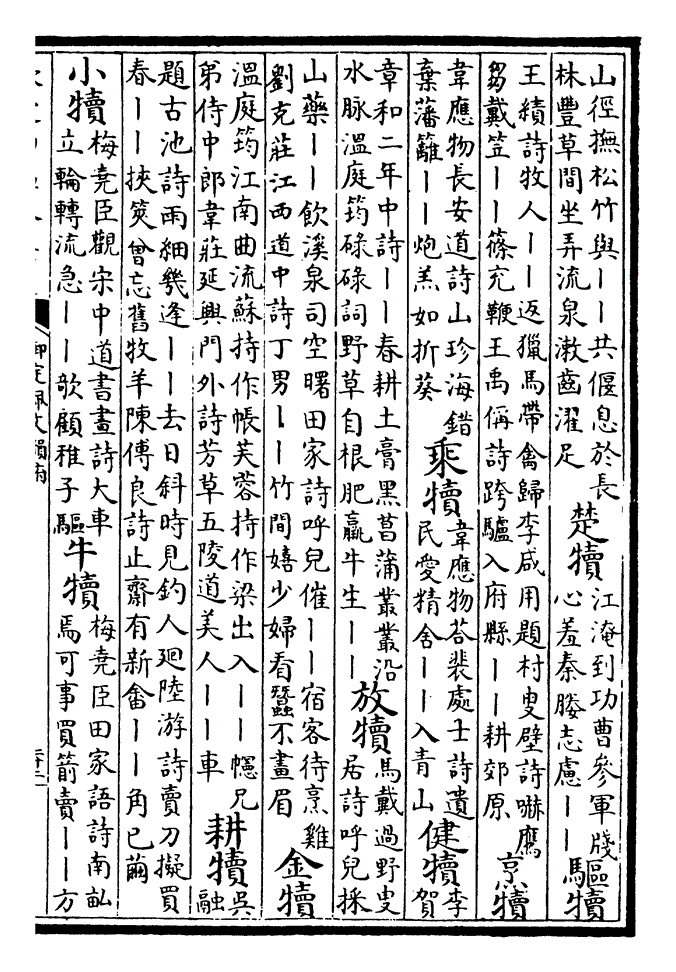 山徑撫松竹與——共偃息於長
林豐草間坐弄流泉漱齒濯足
楚犢
江淹到功曹參軍牋
心羞秦媵志慮——
驅犢
王績詩牧人——返獵馬帶禽歸李咸用題村叟壁詩嚇鷹
芻戴笠——篠充鞭王禹偁詩跨驢入府縣——耕郊原
烹犢
韋應物長安道詩山珍海錯
棄藩籬——炮羔如折葵
乘犢
韋應物荅裴處士詩遺
民愛精舍——入青山
健犢
李
賀
章和二年中詩——春耕土膏黑菖蒲叢叢沿
水脉溫庭筠碌碌詞野草自根肥羸牛生——
放犢
馬戴過野叟
居詩呼兒採
山藥——飲溪泉司空曙田家詩呼兒催——宿客待烹雞
劉克莊江西道中詩丁男——竹間嬉少婦看蠶不畫眉
金犢
溫庭筠江南曲流蘇持作帳芙蓉持作梁出入——幰兄
弟侍中郎韋莊延興門外詩芳草五陵道美人——車
耕犢
吳
融
題古池詩雨細幾逢——去日斜時見釣人廻陸游詩賣刀擬買
春——挾筴曾忘舊牧羊陳傅良詩止齋有新畬——角已繭
小犢
梅堯臣觀宋中道書畫詩大車
立輪轉流急——歌顧稚子驅
牛犢
梅堯臣田家語詩南畝
焉可事買箭賣——方
御定佩文韻府